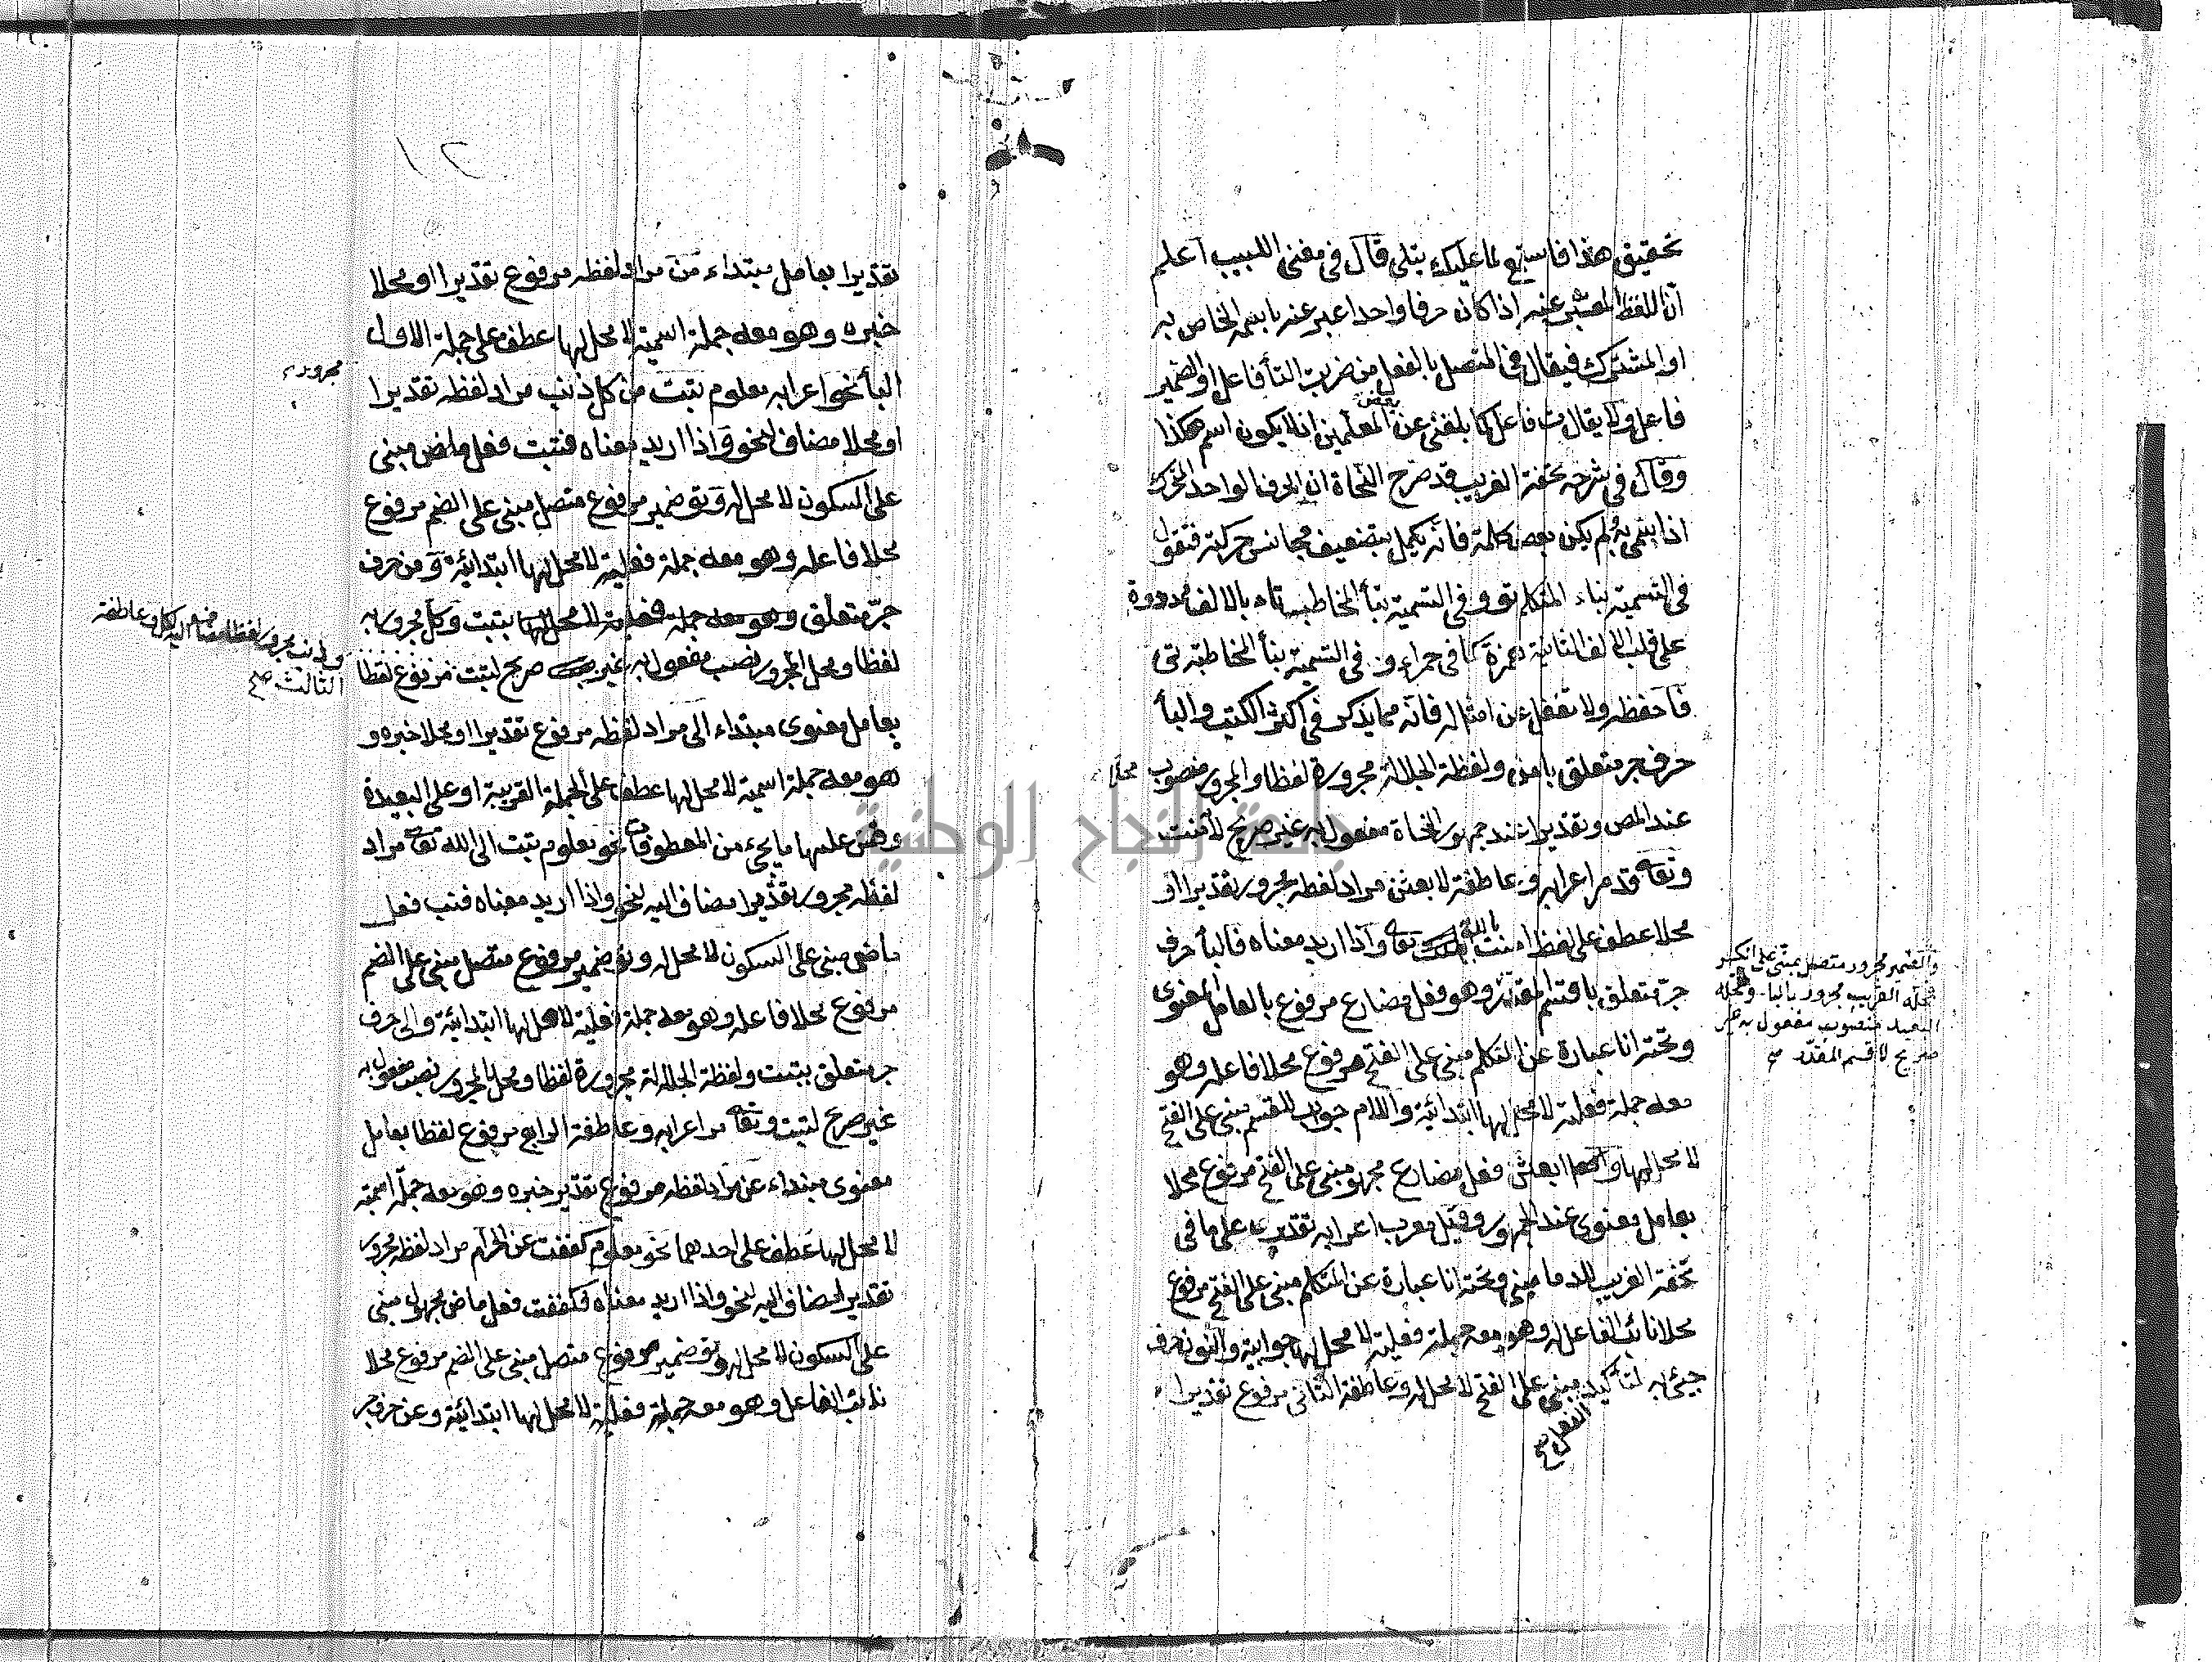 تحقيق هذا فاستمع لما عليك يتلى قال في مغني اللبيب اعلم
ان اللفظ المعبر عنه اذا كان حرفا واحدا عبر عنه باسمه الخاص به
او المشترك فيقال في المتصل بالفعل من ضربت التأ فاعل او الضمير
فاعل ولا يقال ت فاعل كما بلغني عن بعض المعلمين اذ لا يكون اسم هكذا
وقال في شرحه تحفة الغريب قد صرح النحاة ان الحرف الواحد المحرك
اذا سمي به ولم يكن بعض كلمة فانه يكمل بتضعيف مجانس حركته فتقول
في التسمية بتاء المتكلم تو وفي التسمية بتأ المخاطب تاء بالالف ممدودة
على قلب الالف الثانية همزة كما في حمراء وفي التسمية بتأ المخاطبة تي
فاحفظه ولا تغفل عن امثاله فانه مما يذكر في اكثر الكتب والبأ
حرف جر متعلق بامن ولفظة الجلالة مجرورة لفظا والمجرور منصوب محلا
عند المص وتقديرا عند جمهور النحاة مفعول به غير صريح لأمنت
وتعالى قد مر اعرابه وعاطفة لابعثن مراد لفظه مجرور تقديرا او
محلا عطف على لفظ امنت بالله تعالى واذا اريد معناه فالبأ حرف
جر متعلق باقسم المقدر وهو فعل مضارع مرفوع بالعامل المعنوي
وتحته انا عبارة عن المتكلم مبني على الفتح مرفوع محلا فاعله وهو
معه جملة فعلية لا محل لها ابتدائية واللام جواب للقسم مبني على الفتح
لا محل لها وابعثن فعل مضارع مجهول مبني على الفتح مرفوع محلا
بعامل معنوي عند الجمهور وقيل معرب اعرابه تقديري على ما في
تحفة الغريب للدماميني وتحته انا عبارة عن المتكلم مبني على الفتح مرفوع
محلا نائب الفاعل له وهو معه جملة فعلية لا محل لها جوابية والنون حرف
جيئ به لتأكيد الفعل مبني على الفتح لا محل له وعاطفة الثاني مرفوع تقديرا
والضمير مجرور متصل مبني على الكسر
محله القريب مجرور بالبا ومحله
البعيد منصوب مفعول به غير
صريح لاقسم المقدر صح
تقديرا بعامل مبتداء من مراد لفظه مرفوع تقديرا او محلا
خبره وهو معه جملة اسمية لا محل لها عطف على جملة الاول
البأ نحو اعرابه معلوم تبت من كل ذنب مراد لفظه تقديرا
مجرور
او محلا مضاف لنحو واذا اريد معناه فتبت فعل ماض مبني
على السكون لا محل له وتو ضمير مرفوع متصل مبني على الضم مرفوع
محلا فاعله وهو معه جملة فعلية لا محل لها ابتدائية ومن حرف
جر متعلق وهو معه جملة فعلية لا محل لها بتبت وكل مجرور به
لفظا ومحل المجرور نصب مفعول به غير صريح لتبت مرفوع لفظا
وذنب مجرور لفظا مضاف اليه لكل وعاطفة
الثالث صح
بعامل معنوي مبتداء الى مراد لفظه مرفوع تقديرا او محلا خبره و
هو معه جملة اسمية لا محل لها عطف على الجملة القريبة او على البعيدة
وقس عليها ما يجيء من المعطوفات نحو معلوم تبت الى الله تعالى مراد
لفظه مجرور تقديرا مضاف اليه لنحو واذا اريد معناه فتبت فعل
ماضي مبني على السكون لا محل له وتو ضمير مرفوع متصل مبني على الضم
مرفوع محلا فاعله وهو معه جملة فعلية لا محل لها ابتدائية والى حرف
جر متعلق بتبت ولفظة الجلالة مجرورة لفظا ومحل المجرور نصب مفعول به
غير صريح لتبت وتعالى مر اعرابه وعاطفة الرابع مرفوع لفظا بعامل
معنوي مبتداء عن مراد لفظه مرفوع تقدير خبره وهو معه جملة اسمية
لا محل لها عطف على احدهما نحو معلوم كففت عن الحرام مراد لفظه مجرور
تقديرا مضاف اليه لنحو واذا اريد معناه فكففت فعل ماض مجهول مبني
على السكون لا محل له وتو ضمير مرفوع متصل مبني على الضم مرفوع محلا
نائب الفاعل وهو معه جملة فعلية لا محل لها ابتدائية وعن حرف جر
جامعة النجاح الوطنية